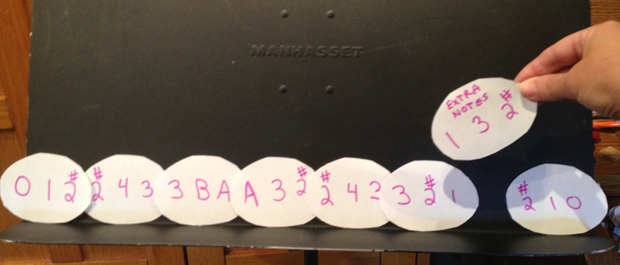 MANHASSET
EXTRA
NOTES
1 3 #2
0 1 #2 #2 4 3 3 B A A 3 #2 #2 4 3 #2 1 #2 1 0